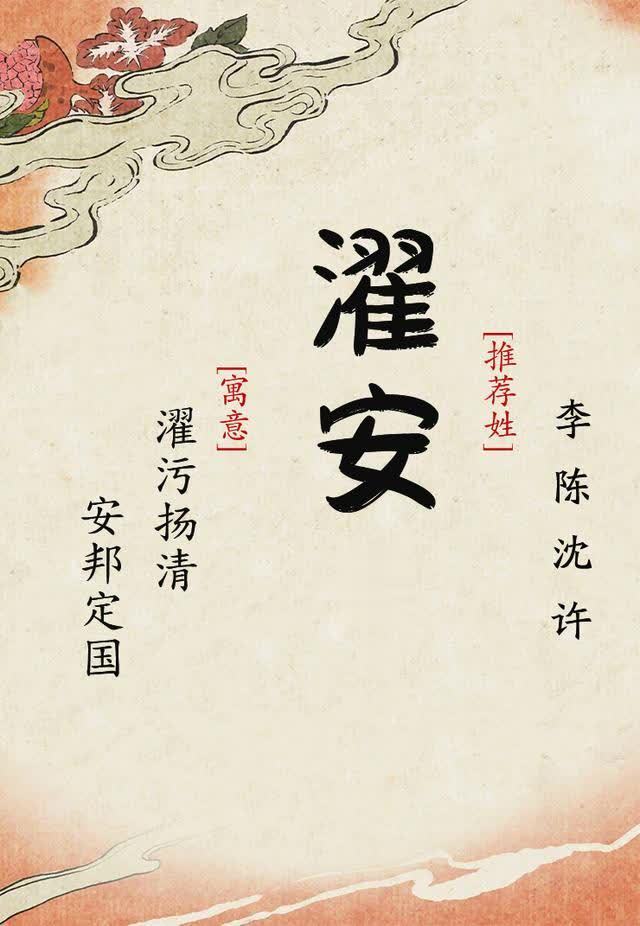 [推荐姓]
李陈沈许
濯安
[寓意]
濯污扬清
安邦定国